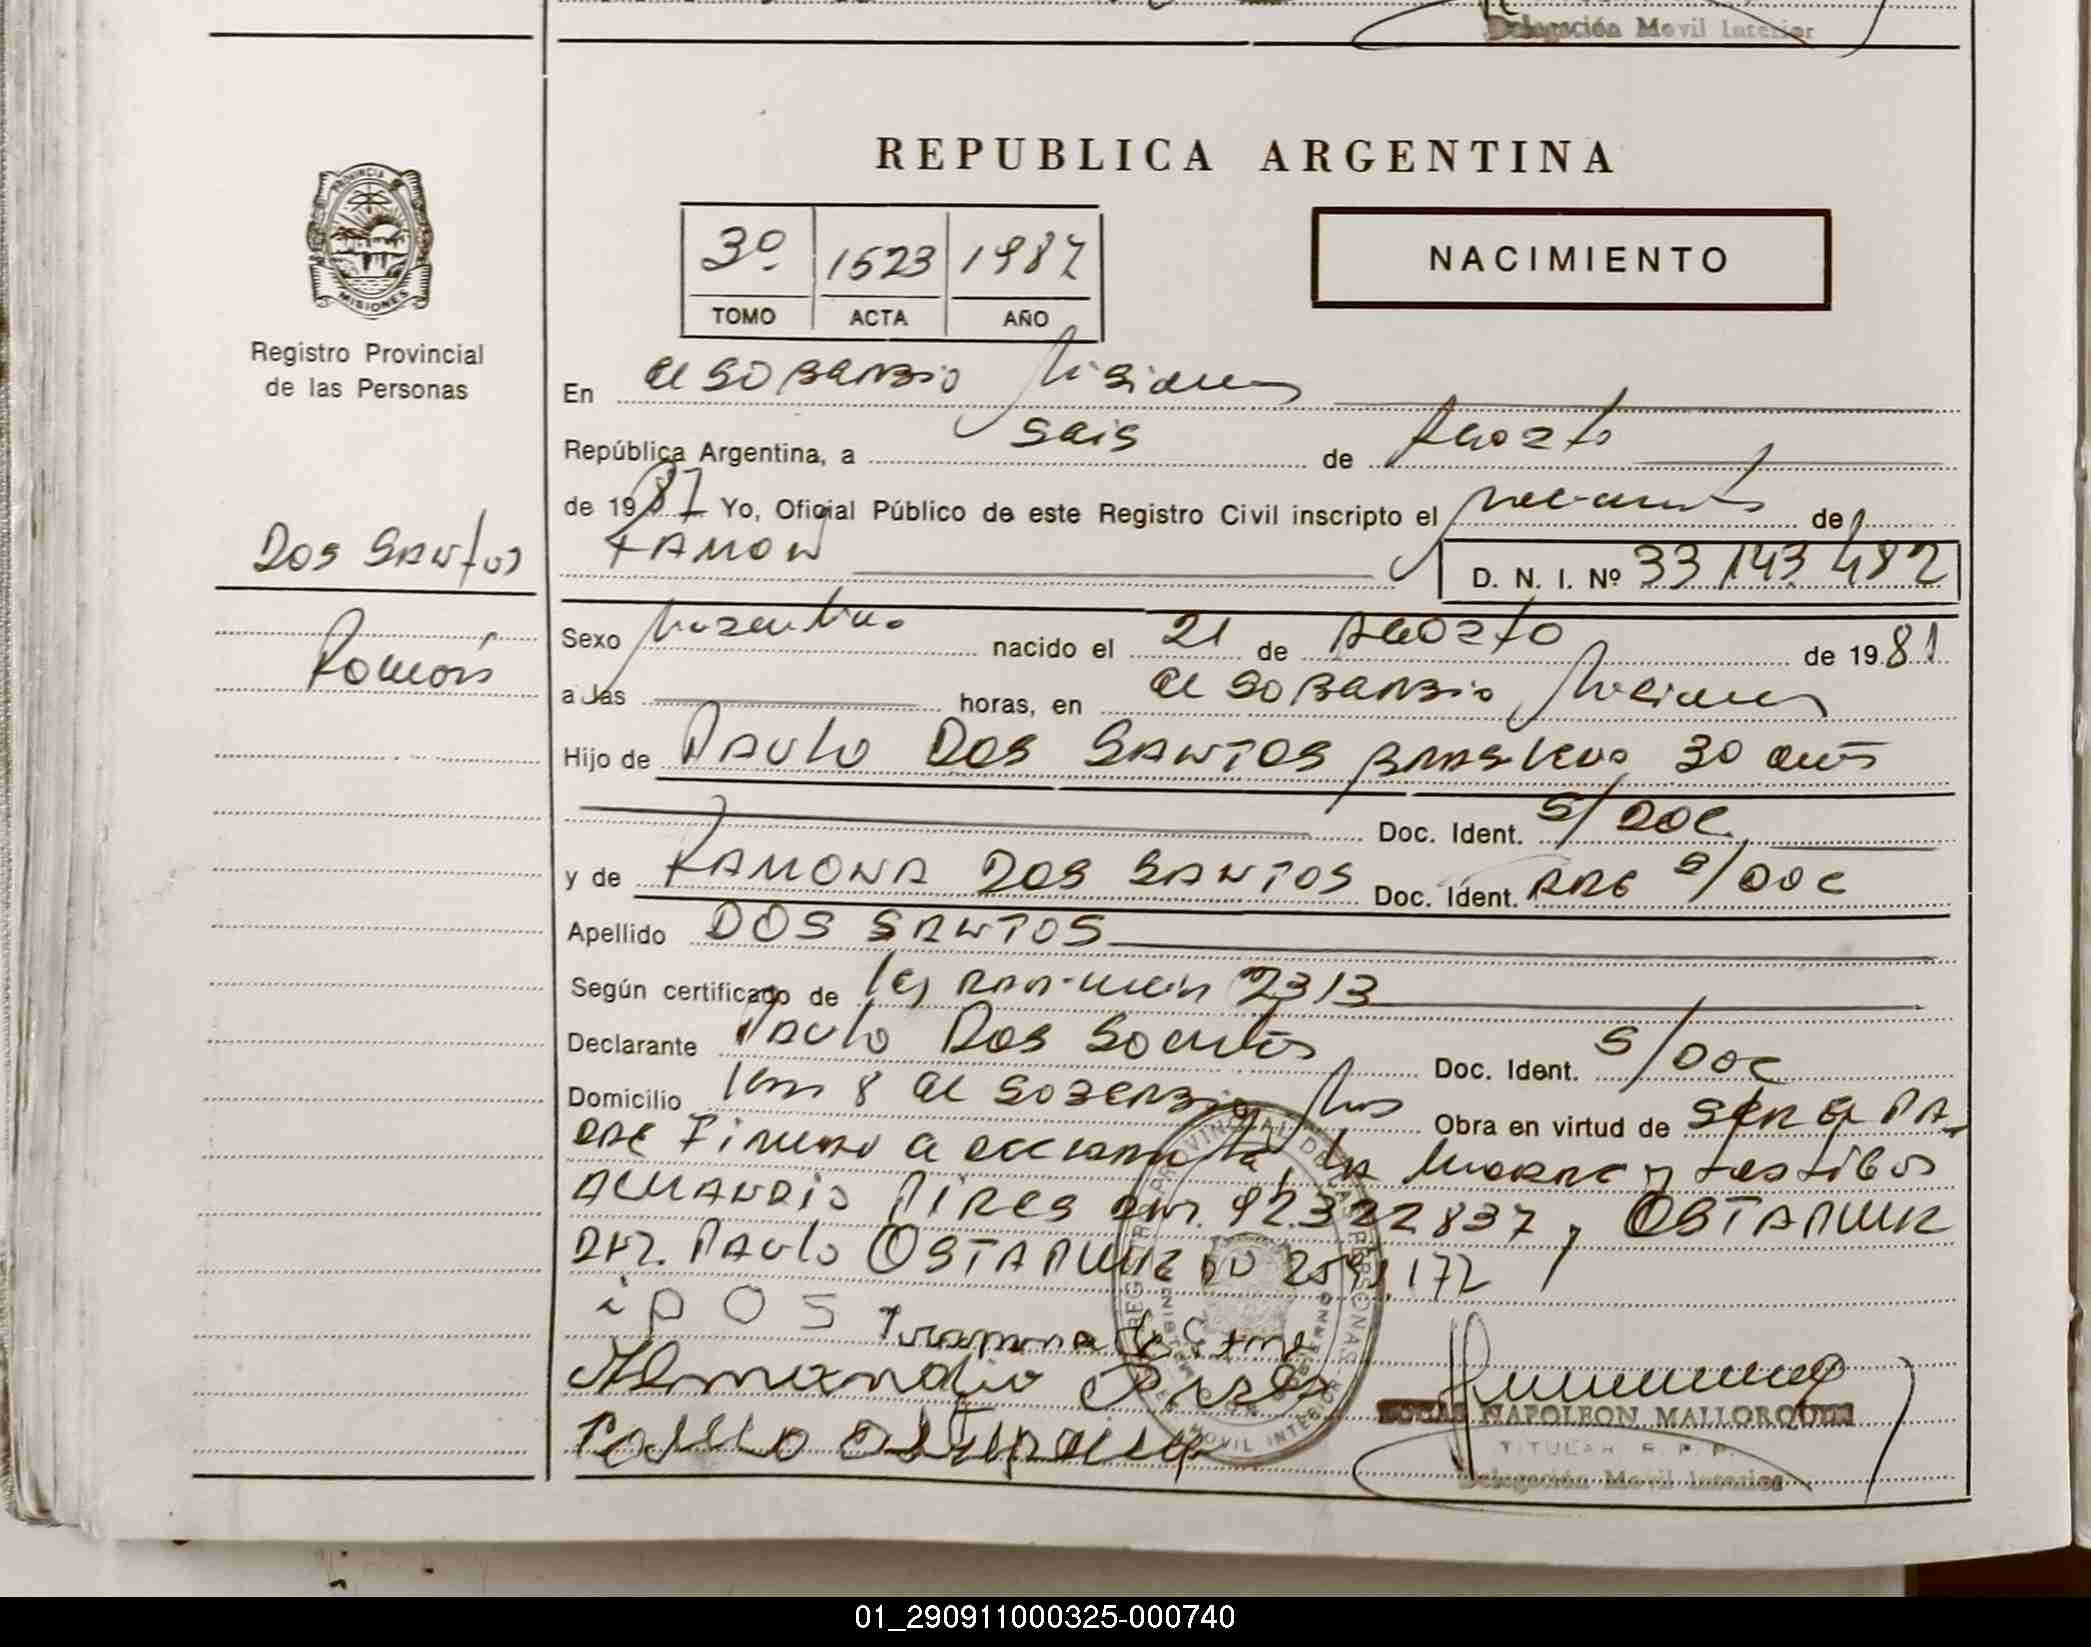 Delegación Movil Interior
REPUBLICA ARGENTINA
PROVINCIA DE
MISIONES
3º 1523 1987
TOMO ACTA AÑO
NACIMIENTO
Registro Provincial
de las Personas
En el soberbio Misiones
República Argentina, a seis de Agosto
de 1987 Yo, Oficial Público de este Registro Civil inscripto el nacimiento de
RAMON
D. N. I. Nº 33 143 482
DOS SANTOS
Ramón
Sexo Masculino nacido el 21 de Agosto de 1981
a las horas, en el soberbio Misiones
Hijo de PAULO DOS SANTOS Brasileño 30 años
Doc. Ident. S/DOC
y de RAMONA DOS SANTOS Doc. Ident. ARG S/DOC
Apellido DOS SANTOS
Según certificado de ley 2313
Declarante Paulo Dos Santos Doc. Ident. S/DOC
Domicilio km 8 el soberbio Mns Obra en virtud de ser el pa-
dre firman a la madre y testigos
ALMANDIO PIRES DNI. 92.322837 y
PAULO
iPOS
Almandio Pires
REGISTRO PROVINCIAL DE LAS PERSONAS
MINISTERIO DE GOBIERNO
MOVIL INTERIOR
NAPOLEON MALLORQUIN
TITULAR R. P. P.
Delegación Movil Interior
01_290911000325-000740